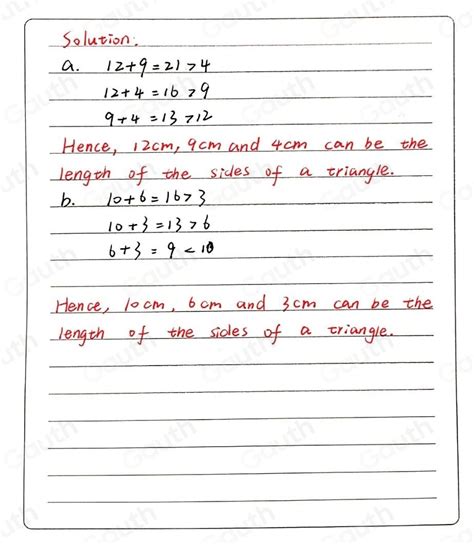 Solution:
a. 12+9=21>4
12+4=16>9
9+4=13>12
Hence, 12cm, 9cm and 4cm can be the
length of the sides of a triangle.
b. 10+6=16>3
10+3=13>6
6+3=9<10
Hence, 10cm, 6cm and 3cm can be the
length of the sides of a triangle.
Gauth